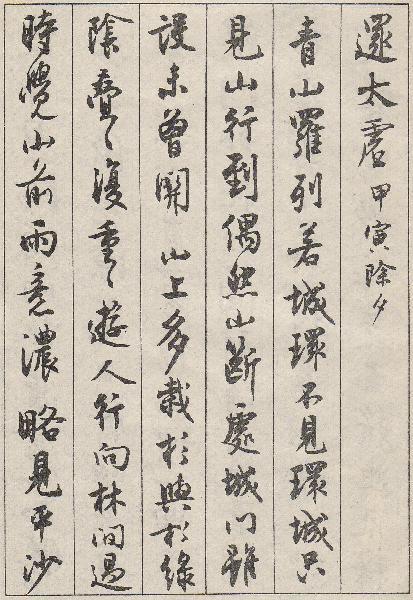 還太虛 甲寅除夕
青山羅列若城環不見環城只
見山行到偶然山斷處城門雖
設未曾關 山上多栽杉與松綠
陰疊々復重々遊人行向林間過
時覺山前雨意濃 略見平沙